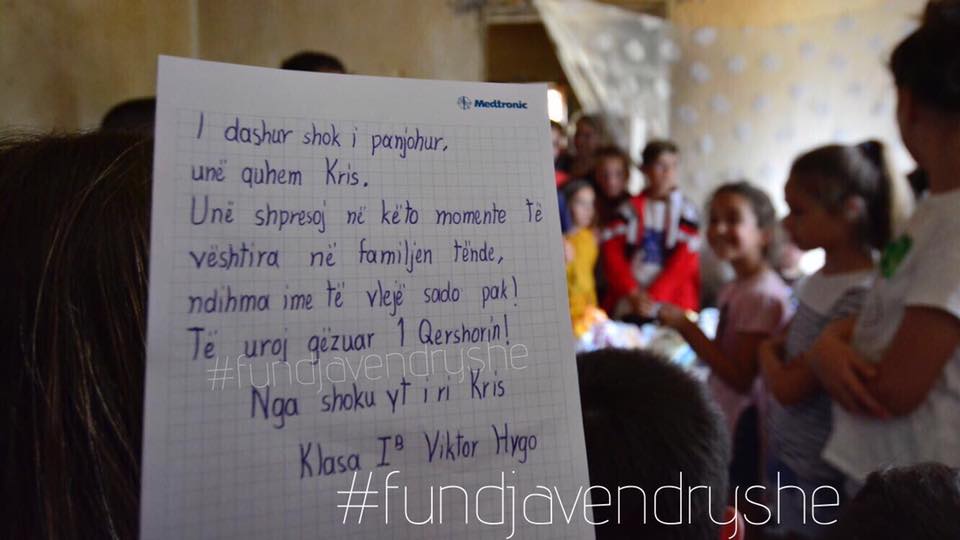 Medtronic
I dashur shok i panjohur,
unë quhem Kris.
Unë shpresoj në këto momente të
vështira në familjen tënde,
ndihma ime të vlejë sado pak!
Të uroj gëzuar 1 Qershorin!
#fundjavendryshe
Nga shoku yt i ri Kris
Klasa I B Viktor Hygo
#fundjavendryshe